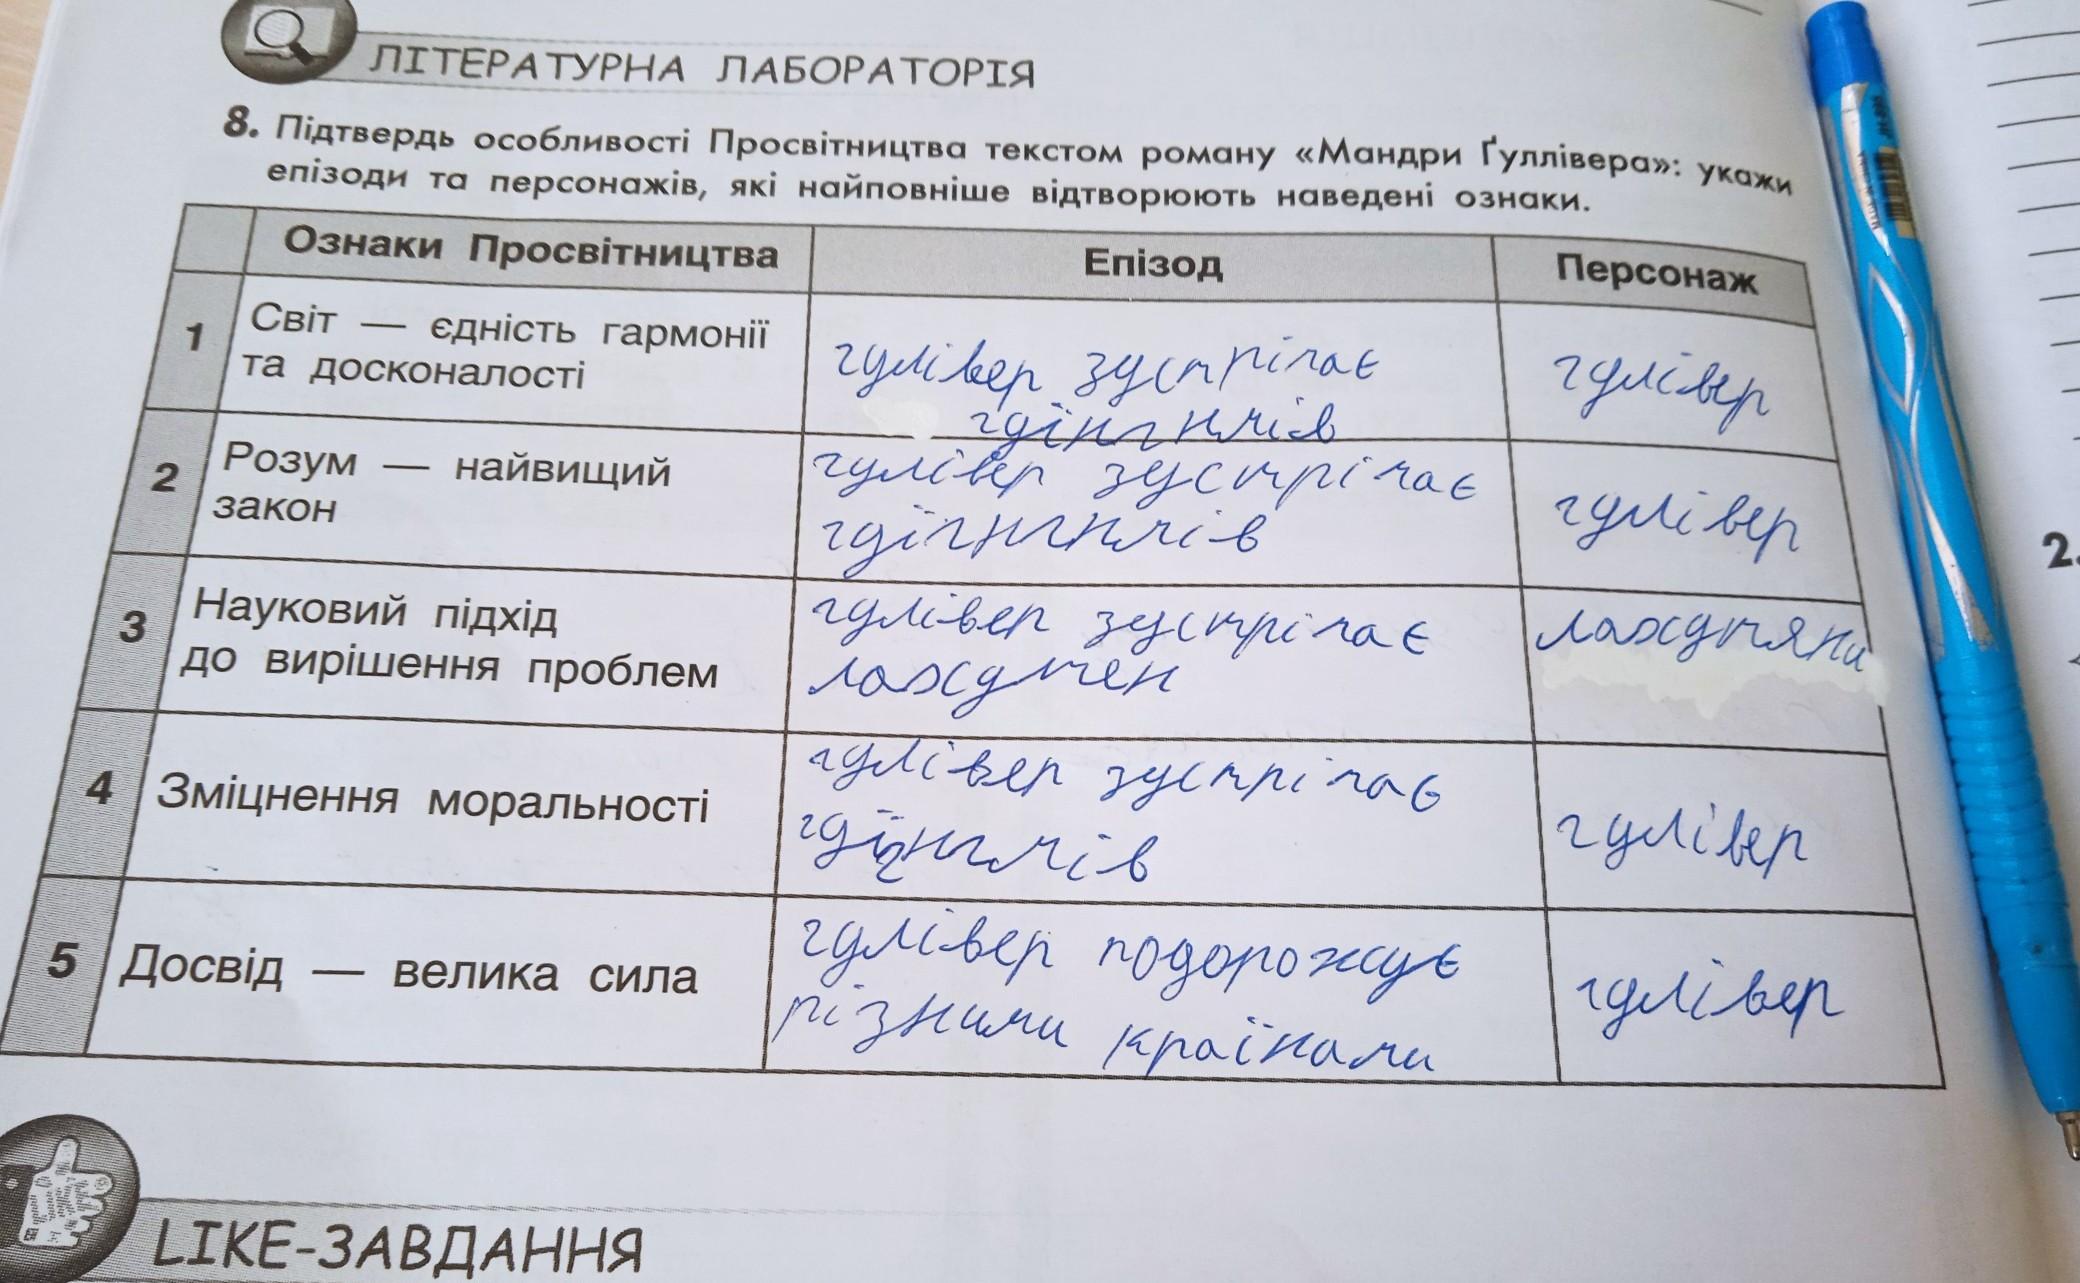 ЛІТЕРАТУРНА ЛАБОРАТОРІЯ
8. Підтвердь особливості Просвітництва текстом роману «Мандри Ґуллівера»: укажи
епізоди та персонажів, які найповніше відтворюють наведені ознаки.
Ознаки Просвітництва
Епізод
Персонаж
1
Світ — єдність гармонії
та досконалості
гулівер зустрічає
гулівер
2
Розум — найвищий
закон
гулівер зустрічає
гулівер
3
Науковий підхід
до вирішення проблем
гулівер зустрічає
4
Зміцнення моральності
гулівер зустрічає
гулівер
5
Досвід — велика сила
гулівер подорожує
різними країнами
гулівер
LIKE-ЗАВДАННЯ
2.